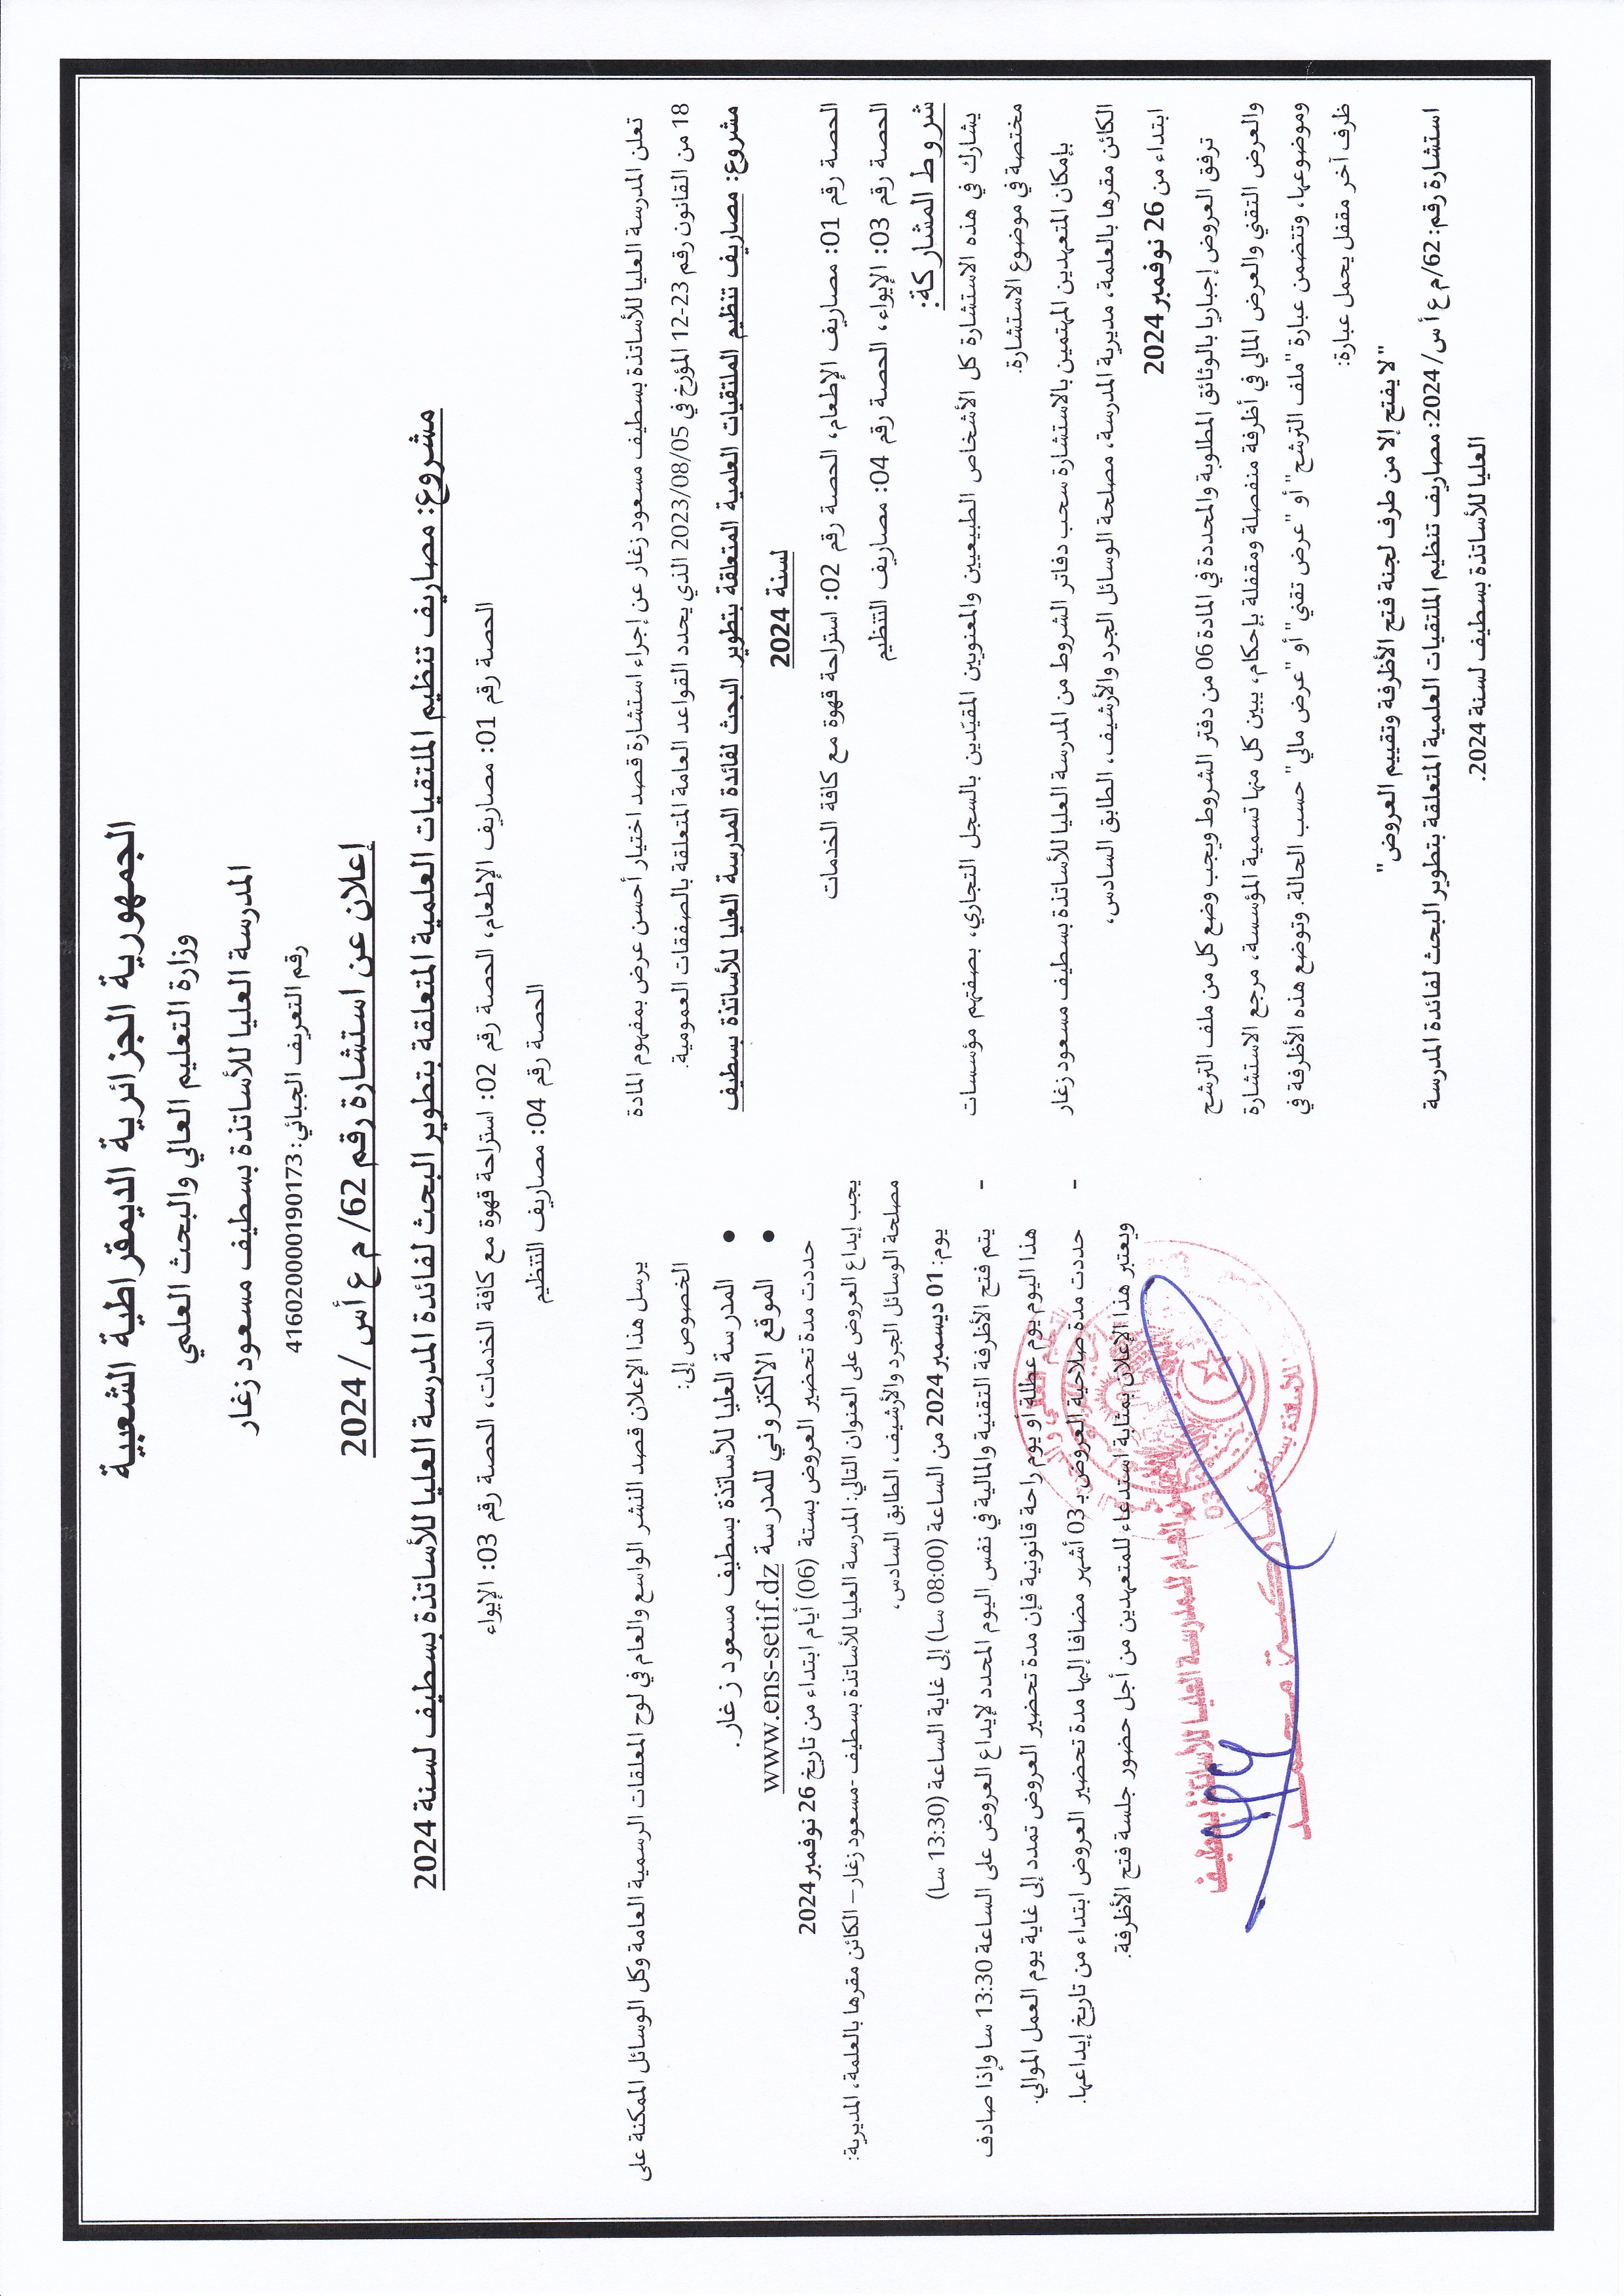 الجمهورية الجزائرية الديمقراطية الشعبية
وزارة التعليم العالي والبحث العلمي
المدرسة العليا للأساتذة بسطيف مسعود زغار
رقم التعريف الجبائي: 416020000190173
إعلان عن استشارة رقم 62/ م ع أ س / 2024
مشروع: مصاريف تنظيم الملتقيات العلمية المتعلقة بتطوير البحث لفائدة المدرسة العليا للأساتذة بسطيف لسنة 2024
الحصة رقم 01: مصاريف الإطعام، الحصة رقم 02: استراحة قهوة مع كافة الخدمات، الحصة رقم 03: الإيواء
الحصة رقم 04: مصاريف التنظيم
تعلن المدرسة العليا للأساتذة بسطيف مسعود زغار عن إجراء استشارة قصد اختيار أحسن عرض بمفهوم المادة
18 من القانون رقم 23-12 المؤرخ في 2023/08/05 الذي يحدد القواعد العامة المتعلقة بالصفقات العمومية.
مشروع: مصاريف تنظيم الملتقيات العلمية المتعلقة بتطوير البحث لفائدة المدرسة العليا للأساتذة بسطيف
لسنة 2024
الحصة رقم 01: مصاريف الإطعام، الحصة رقم 02: استراحة قهوة مع كافة الخدمات
الحصة رقم 03: الإيواء، الحصة رقم 04: مصاريف التنظيم
شروط المشاركة:
يشارك في هذه الاستشارة كل الأشخاص الطبيعيين والمعنويين المقيّدين بالسجل التجاري، بصفتهم مؤسسات
مختصة في موضوع الاستشارة.
بإمكان المتعهدين المهتمين بالاستشارة سحب دفاتر الشروط من المدرسة العليا للأساتذة بسطيف مسعود زغار
الكائن مقرها بالعلمة، مديرية المدرسة، مصلحة الوسائل الجرد والأرشيف، الطابق السادس،
ابتداء من 26 نوفمبر 2024
ترفق العروض إجباريا بالوثائق المطلوبة والمحددة في المادة 06 من دفتر الشروط ويجب وضع كل من ملف الترشح
والعرض التقني والعرض المالي في أظرفة منفصلة ومقفلة بإحكام، يبين كل منها تسمية المؤسسة، مرجع الاستشارة
وموضوعها، وتتضمن عبارة "ملف الترشح" أو "عرض تقني" أو "عرض مالي" حسب الحالة. وتوضع هذه الأظرفة في
ظرف آخر مقفل يحمل عبارة:
"لا يفتح إلا من طرف لجنة فتح الأظرفة وتقييم العروض"
استشارة رقم: 62/م ع أ س/2024: مصاريف تنظيم الملتقيات العلمية المتعلقة بتطوير البحث لفائدة المدرسة
العليا للأساتذة بسطيف لسنة 2024.
يرسل هذا الإعلان قصد النشر الواسع والعام في لوح المعلقات الرسمية العامة وكل الوسائل الممكنة على
الخصوص إلى:
• المدرسة العليا للأساتذة بسطيف مسعود زغار.
• الموقع الالكتروني للمدرسة www.ens-setif.dz
حددت مدة تحضير العروض بستة (06) أيام ابتداء من تاريخ 26 نوفمبر 2024
يجب إيداع العروض على العنوان التالي: المدرسة العليا للأساتذة بسطيف -مسعود زغار– الكائن مقرها بالعلمة، المديرية:
مصلحة الوسائل الجرد والأرشيف، الطابق السادس،
يوم: 01 ديسمبر 2024 من الساعة (08:00 سا) إلى غاية الساعة (13:30 سا)
- يتم فتح الأظرفة التقنية والمالية في نفس اليوم المحدد لإيداع العروض على الساعة 13:30 سا وإذا صادف
هذا اليوم يوم عطلة أو يوم راحة قانونية فإن مدة تحضير العروض تمدد إلى غاية يوم العمل الموالي.
- حددت مدة صلاحية العروض بـ 03 أشهر مضافا إليها مدة تحضير العروض ابتداء من تاريخ إيداعها.
ويعتبر هذا الإعلان بمثابة استدعاء للمتعهدين من أجل حضور جلسة فتح الأظرفة.
العام للمدرسة العليا للأساتذة بسطيف